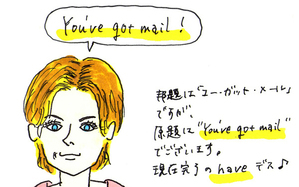 You've got mail !
邦題は「ユー・ガット・メール」
ですが、
原題は "You've got mail"
でございます。
現在完了の have デス♪